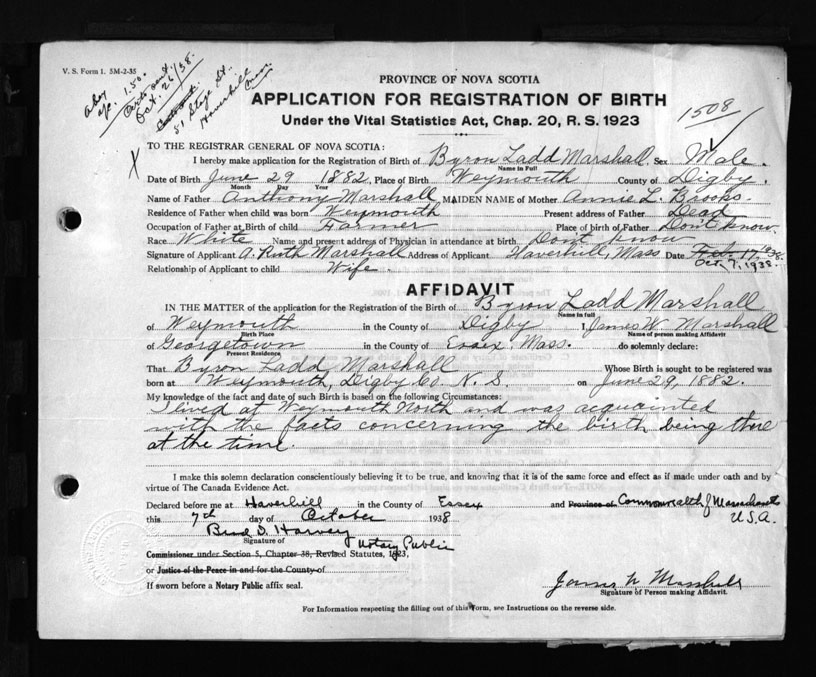 V. S. Form 1. 5M-2-35
a/c. 1.50.
Certs sent.
Oct. 26/38.
51 Stage St.,
Haverhill
Mass.
PROVINCE OF NOVA SCOTIA
APPLICATION FOR REGISTRATION OF BIRTH
Under the Vital Statistics Act, Chap. 20, R. S. 1923
1508
X
TO THE REGISTRAR GENERAL OF NOVA SCOTIA:
I hereby make application for the Registration of Birth of Byron Ladd Marshall Sex Male.
Name in Full
Date of Birth June 29 1882, Place of Birth Weymouth County of Digby.
Month Day Year
Name of Father Anthony Marshall MAIDEN NAME of Mother Annie L. Brooks.
Residence of Father when child was born Weymouth Present address of Father Dead
Occupation of Father at Birth of child Farmer Place of birth of Father Don't know.
Race White Name and present address of Physician in attendance at birth Don't know
Signature of Applicant A. Ruth Marshall Address of Applicant Haverhill, Mass Date Feb. 17, 1936
Oct. 7, 1938.
Relationship of Applicant to child Wife.
AFFIDAVIT
IN THE MATTER of the application for the Registration of the Birth of Byron Ladd Marshall
Name in full
of Weymouth in the County of Digby I, James W. Marshall
Birth Place Name of person making Affidavit
of Georgetown in the County of Essex Mass. do solemnly declare:
Present Residence
That Byron Ladd Marshall Whose Birth is sought to be registered was
born at Weymouth, Digby Co. N. S. on June 29, 1882.
My knowledge of the fact and date of such Birth is based on the following Circumstances:
I lived at Weymouth North and was acquainted
with the facts concerning the birth, being there
at the time.
I make this solemn declaration conscientiously believing it to be true, and knowing that it is of the same force and effect as if made under oath and by
virtue of The Canada Evidence Act.
Declared before me at Haverhill in the County of Essex and Province of Commonwealth of Massachusetts
this 7th day of October 1938 U.S.A.
D. Harvey
Signature of Notary Public
Commissioner under Section 5, Chapter 38, Revised Statutes, 1923,
or Justice of the Peace in and for the County of
If sworn before a Notary Public affix seal.
James W Marshall
Signature of Person making Affidavit.
For Information respecting the filling out of this Form, see Instructions on the reverse side.